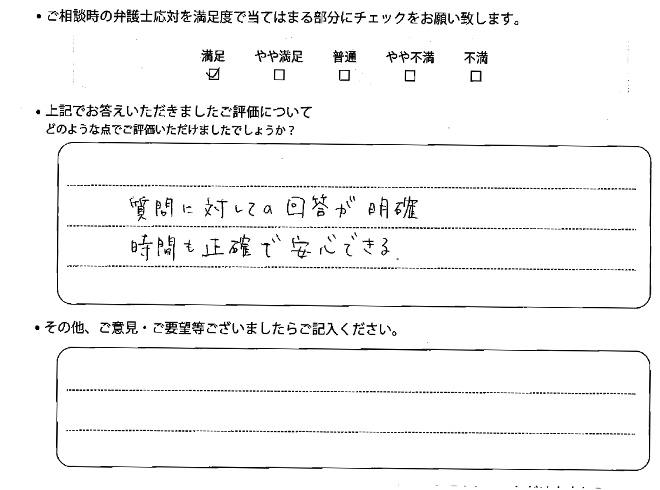 ・ご相談時の弁護士応対を満足度で当てはまる部分にチェックをお願い致します。
満足 やや満足 普通 やや不満 不満
☑ □ □ □ □
・上記でお答えいただきましたご評価について
どのような点でご評価いただけましたでしょうか？
質問に対しての回答が明確
時間も正確で安心できる.
・その他、ご意見・ご要望等ございましたらご記入ください。